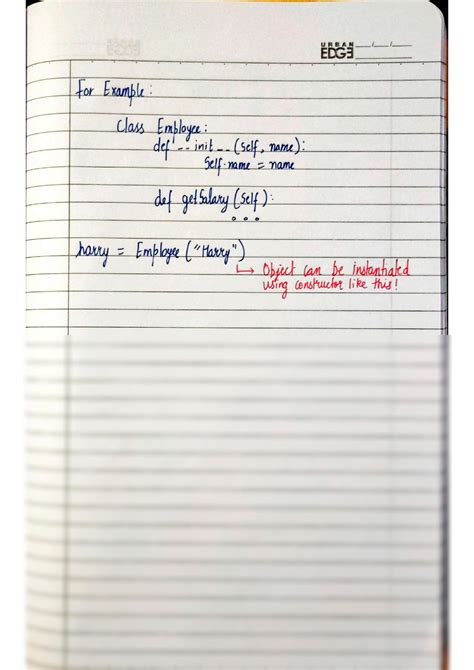 URBAN
EDGE
For Example :
Class Employee :
def __init__(self, name):
Self.name = name
def getSalary(Self):
...
harry = Employee("Harry")
Object can be instantiated
using constructor like this!